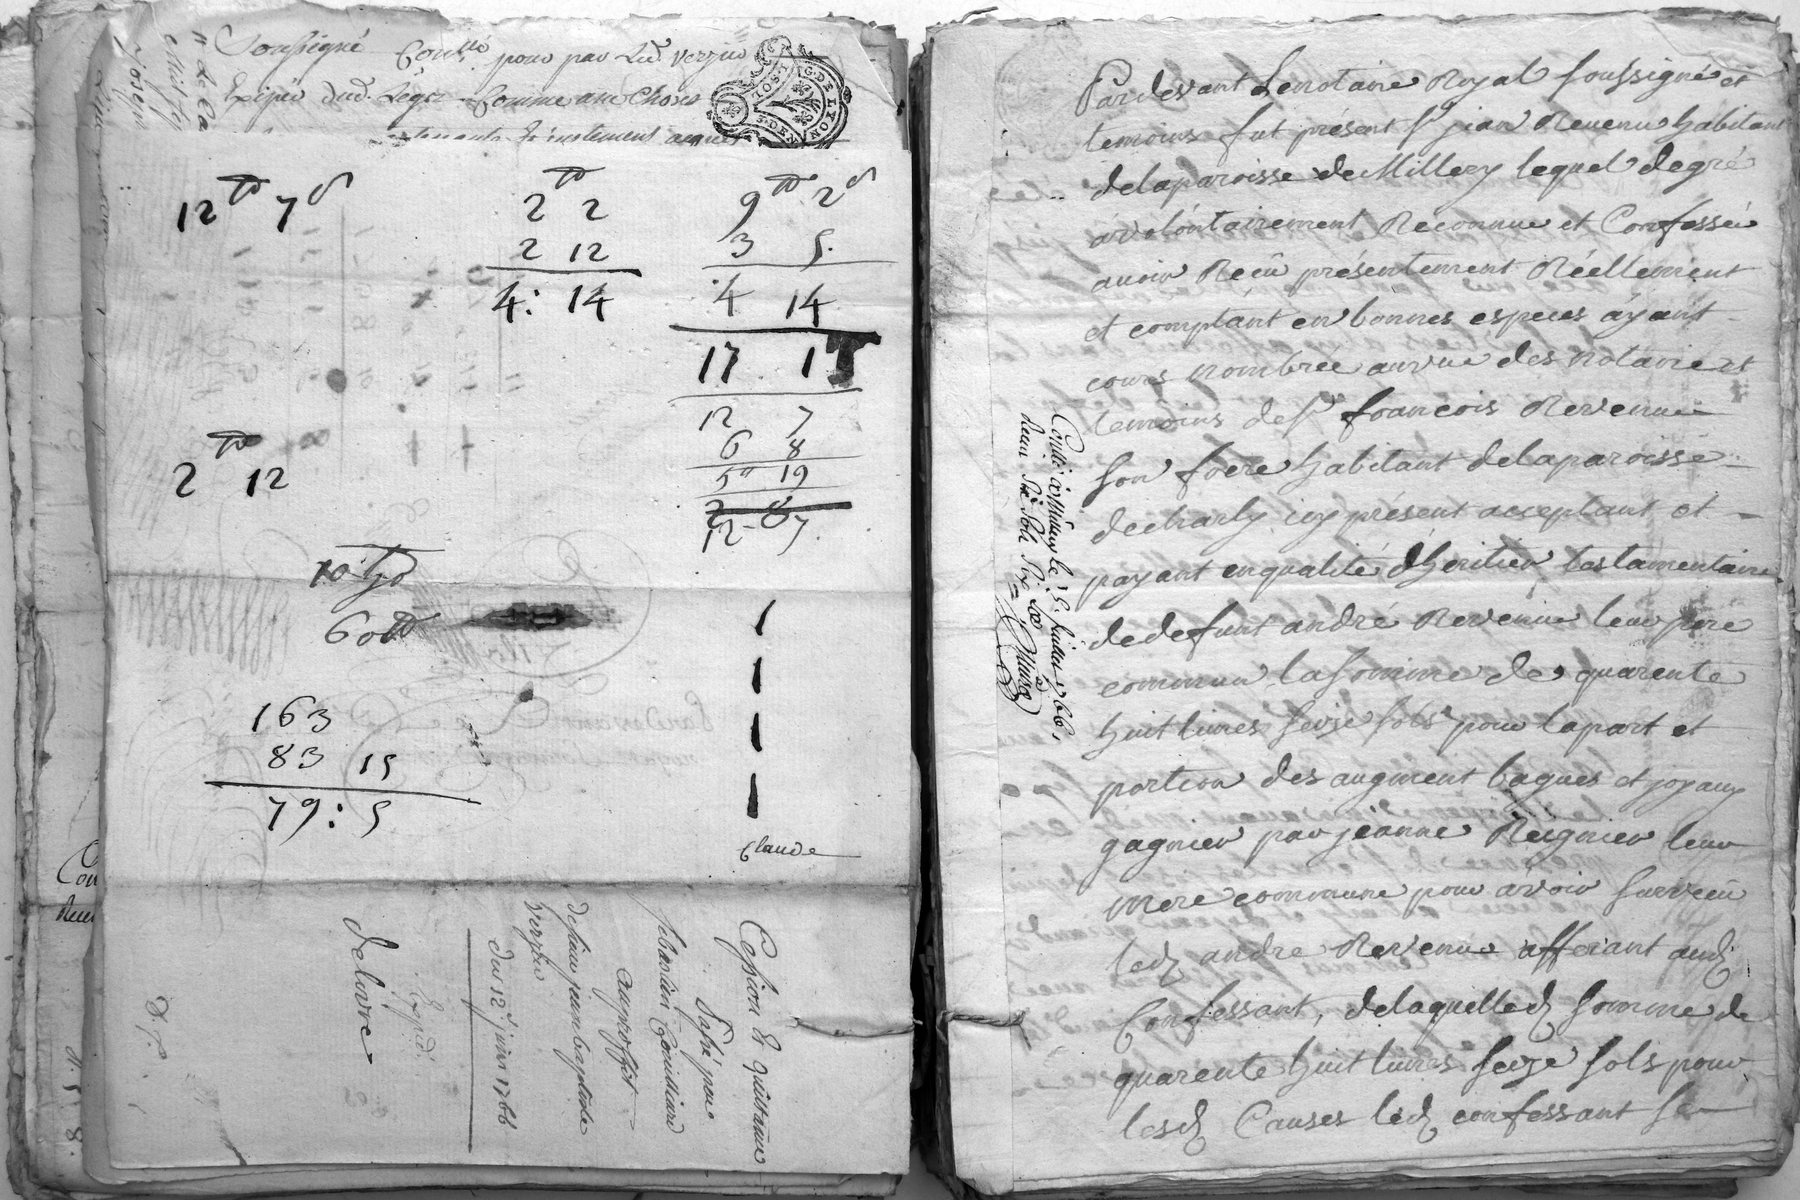 Soussigné
pour par Led. verzieu
Comme une Chose
G. DE LYON
12 tt 7 s
2 tt 2
2 12
4: 14
9 tt 2 s
3 5.
4 14
17 1
12 7
6 8
5 19
12 - 7
2 tt 12
60 tt
163
83 15
79: 5
Claude
Cession Et quittance
sebastien
au proffit
de sieur jean baptiste
verzieu
du 12e juin 1766
Expéd.
delivré
Pardevant Le notaire Royal soussigné et
temoins fut présent sr jean Revenu habitant
de la paroisse de Millery lequel de gré
a volontairement Reconnue et Confessée
avoir Reçû présentement Réellement
et comptant en bonnes especes ayant
cours nombrée au vue des notaire et
temoins de sr francois Revenu
son frere habitant de la paroisse
de charly icy présent acceptant et
payant en qualité d'heritier testamentaire
de defunt andré Revenu leur pere
commun la somme de quarente
huit livres seize sols pour la part et
portion des augment bagues et joyaux
gagnier par jeanne Reignier leur
mere commune pour avoir survecu
led. andre Revenu afferant aud.
Confessant, de laquelle d. somme de
quarente huit livres seize sols pour
lesd. Causes led. confessant se
Contté à Millery le juillet 1766,